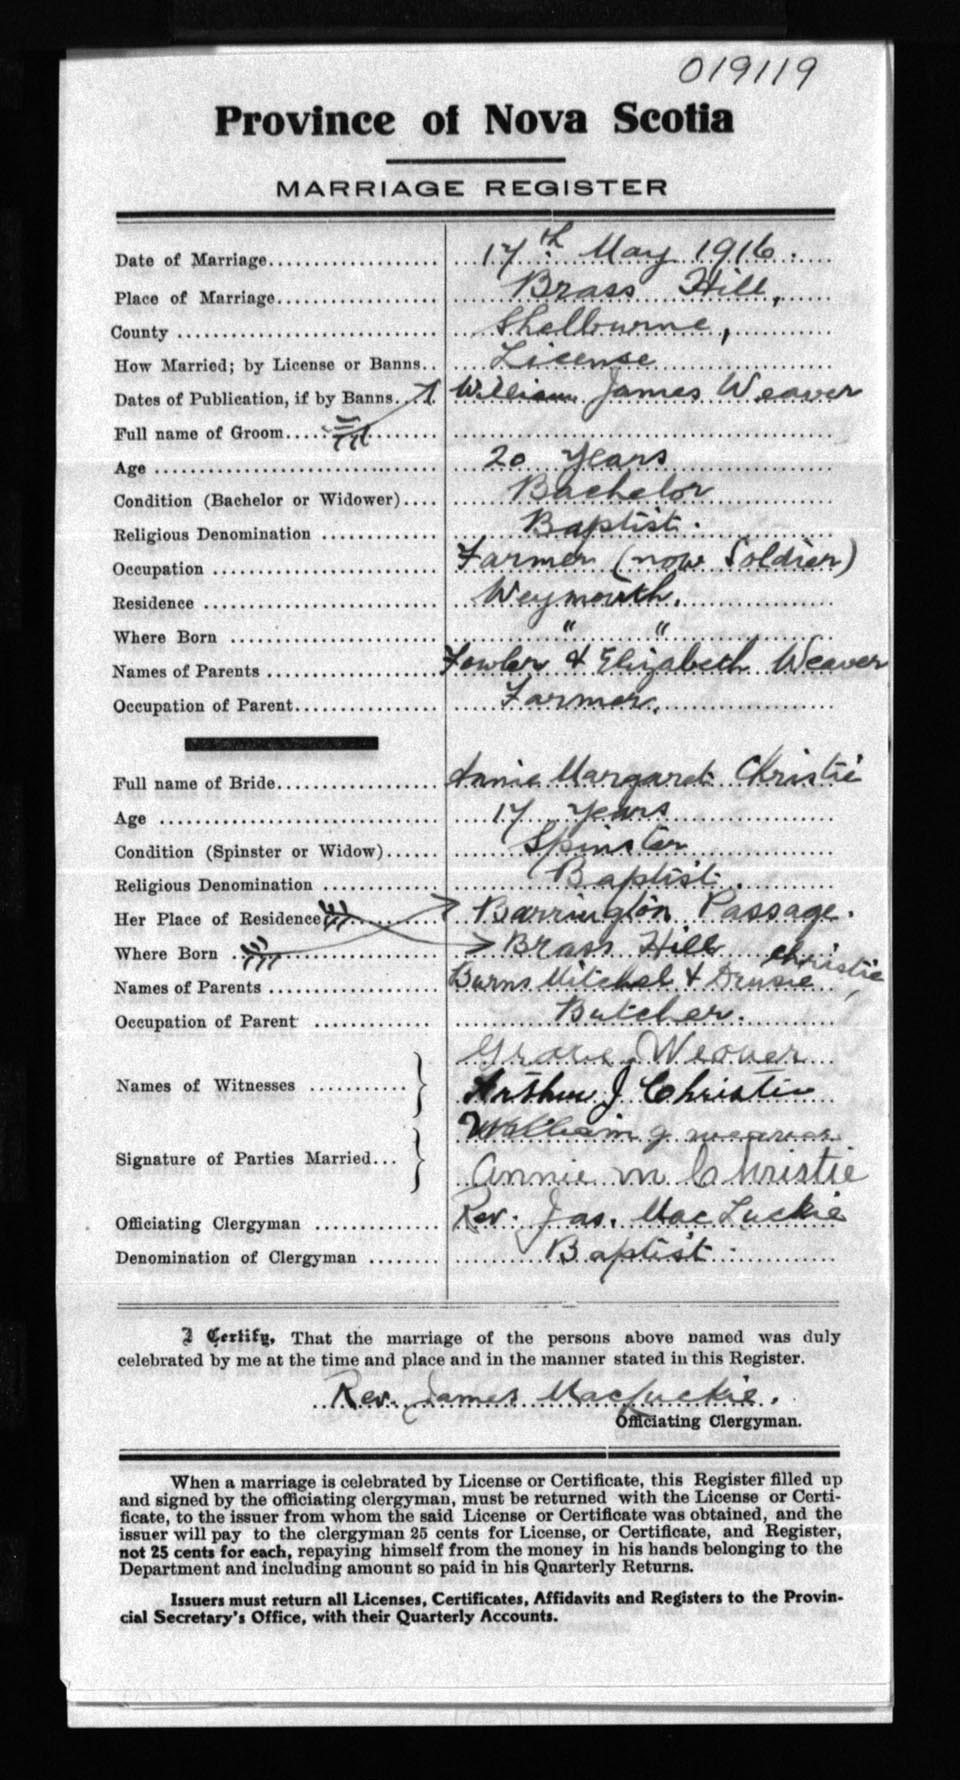 019119
Province of Nova Scotia
MARRIAGE REGISTER
Date of Marriage 17th May 1916.
Place of Marriage Brass Hill,
County Shelburne,
How Married; by License or Banns License
Dates of Publication, if by Banns William James Weaver
Full name of Groom
Age 20 Years
Condition (Bachelor or Widower) Bachelor
Religious Denomination Baptist.
Occupation Farmer (now Soldier)
Residence Weymouth.
Where Born " "
Names of Parents Fowler & Elizabeth Weaver
Occupation of Parent Farmer.
Full name of Bride Annie Margaret Christie
Age 17 Years
Condition (Spinster or Widow) Spinster
Religious Denomination Baptist.
Her Place of Residence Barrington Passage.
Where Born Brass Hill
Names of Parents Burns Mitchel & Drusie Christie,
Occupation of Parent Butcher.
Grace J Weaver
Names of Witnesses Arthur J Christie
William J Weaver
Signature of Parties Married Annie M Christie
Officiating Clergyman Rev. Jas. MacLuckie
Denomination of Clergyman Baptist.
I Certify, That the marriage of the persons above named was duly
celebrated by me at the time and place and in the manner stated in this Register.
Rev. James MacLuckie.
Officiating Clergyman.
When a marriage is celebrated by License or Certificate, this Register filled up
and signed by the officiating clergyman, must be returned with the License or Certi-
ficate, to the issuer from whom the said License or Certificate was obtained, and the
issuer will pay to the clergyman 25 cents for License, or Certificate, and Register,
not 25 cents for each, repaying himself from the money in his hands belonging to the
Department and including amount so paid in his Quarterly Returns.
Issuers must return all Licenses, Certificates, Affidavits and Registers to the Provin-
cial Secretary's Office, with their Quarterly Accounts.